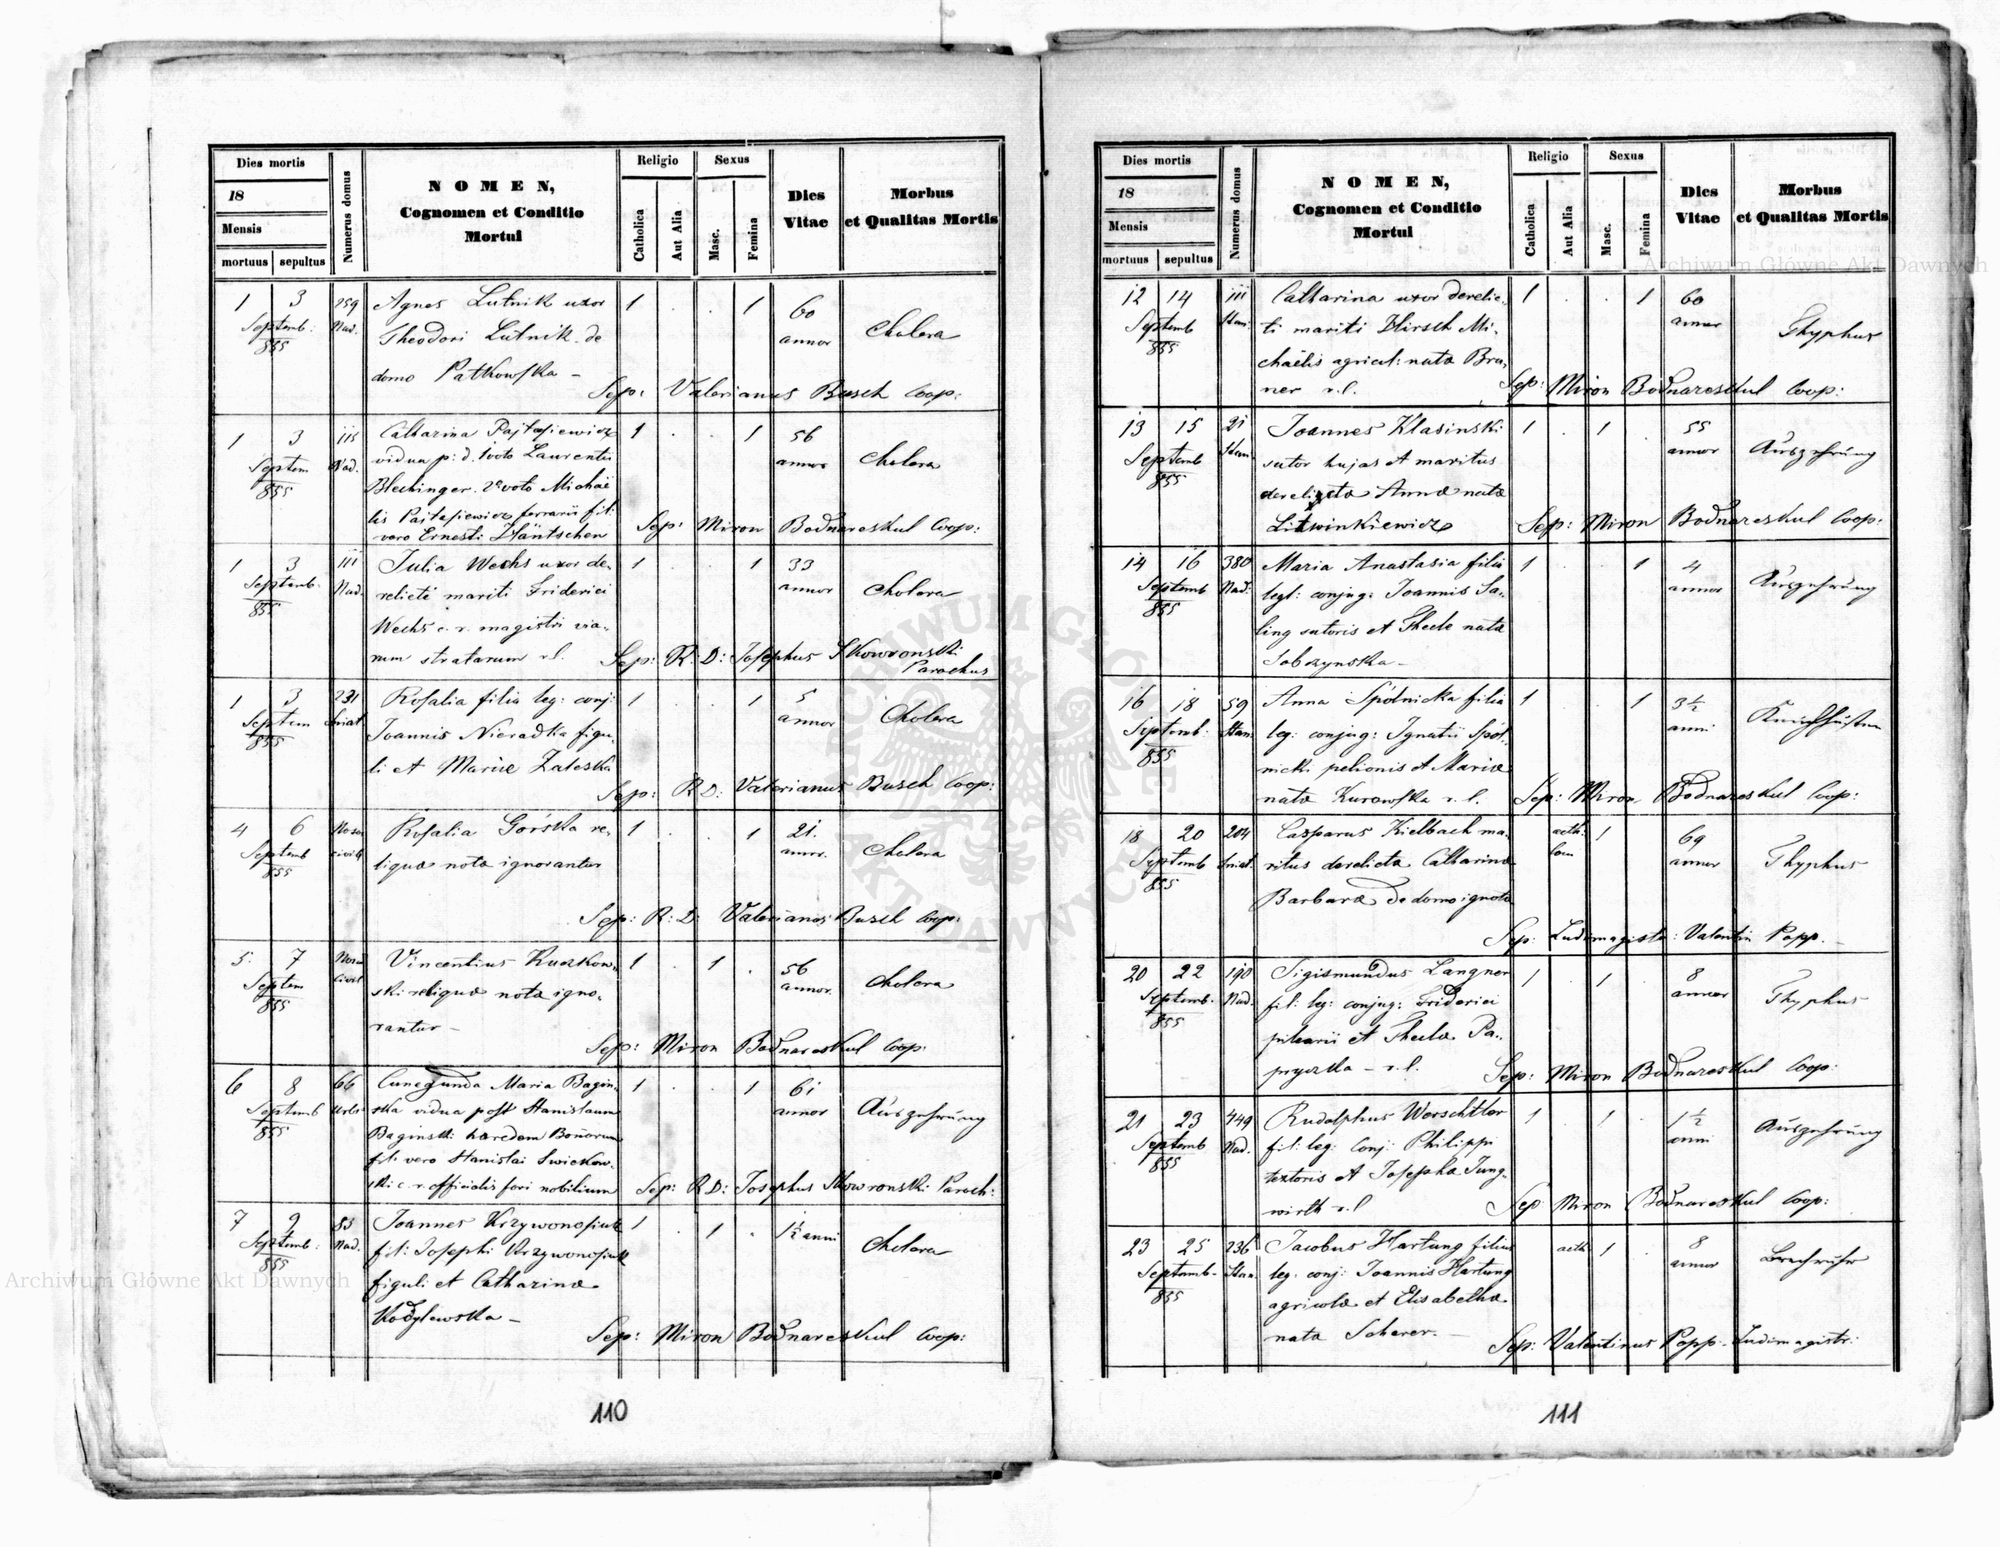 Dies mortis
18
Mensis
mortuus sepultus
Numerus domus
NOMEN,
Cognomen et Conditio
Mortui
Religio
Catholica
Aut Alia
Sexus
Masc.
Femina
Dies
Vitae
Morbus
et Qualitas Mortis
1 3 259 Agnes Lutnik uxor 1 . . 1 60
Septemb: Nad. Theodori Lutnik de annor Cholera
855
domo Patkowska –
Sep: Valerianus Busch Coop:
1 3 115 Catharina Pajtasiewicz 1 . . 1 56
Septem Nad. vidua p: d. 1voto Laurentii annor Cholera
855 Blechinger. 2voto Michaë
lis Pajtasiewicz ferrarii fil:
vero Ernesti Häntschen
Sep: Miron Bodnareskul Coop:
1 3 111 Julia Wechs uxor de- 1 . . 1 33
Septemb. Nad. relicti mariti Friderici annor Cholera
855 Wechs c. r. magistri via-
rum stratarum r.l.
Sep: R: D: Josephus Skowronski
Parochus
1 3 231 Rosalia filia leg: conj: 1 . . 1 5
Septem Sniat. Joannis Nieradka figu- annor Cholera
855 li et Mariæ Zaleska
Sep: R D: Valerianus Busch Coop:
4 6 Rosalia Górska re- 1 . . 1 21.
Septemb civili liquæ nota ignorantur annor. Cholera
855
Sep: R: D: Valerianus Busch Coop:
5. 7 Vincentius Kuczkow- 1 . 1 . 56
Septem civil ski reliquæ nota igno- annor. Cholera
855 rantur –
Sep: Miron Bodnareskul Coop:
6 8 66 Cunegunda Maria Bagin- 1 . . 1 61
Septemb Urbs ska vidua post Stanislaum annor Auszehrung
855 Baginski hæredem Bonorum
fil: vero Stanislai Swiekow-
ski c. r. officialis fori nobilium
Sep: R D: Josephus Skowronski Paroch:
7 9 83 Joannes Krzywonosiuk 1 . 1 . 1½ anni
Septemb: Nad. fil: Josephi Krzywonosiuk Cholera
855 figuli et Catharinæ
Kodylewska –
Sep: Miron Bodnareskul Coop:
110
Dies mortis
18
Mensis
mortuus sepultus
Numerus domus
NOMEN,
Cognomen et Conditio
Mortui
Religio
Catholica
Aut Alia
Sexus
Masc.
Femina
Dies
Vitae
Morbus
et Qualitas Mortis
12 14 111 Catharina uxor derelic- 1 . . 1 60
Septemb ti mariti Hirsch Mi- annor Thyphus
855 chaëlis agricul: nata Bru-
ner r.l.
Sep: Miron Bodnareskul Coop:
13 15 21 Joannes Klasinski 1 . 1 . 55
Septemb sutor hujas et maritus annor Auszehrung
855 derelicta Anna nata
Litwinkiewicz
Sep: Miron Bodnareskul Coop:
14 16 380 Maria Anastasia filia 1 . . 1 4
Septemb Nad: legt: conjug: Joannis Sa- annor Auszehrung
855 ling sutoris et Theclæ nata
Sobczynska –
16 18 59 Anna Spólnicka filia 1 . . 1 3½
Septemb: leg: conjug: Ignatii Spól- anni Keuchhusten
855 nicki pelionis et Mariæ
nata Kurowska r. l.
Sep: Miron Bodnareskul Coop:
18 20 204 Casparus Kielbach ma- 1 69
Septemb Sniat. ritus derelicta Catharina annor Thyphus
855 Barbara de domo ignota
Sep: Ludimagister: Valentin Popp. –
20 22 190 Sigismundus Langner 1 . 1 . 8
Septemb. Nad. fil: leg: conjug: Friderici annor Thyphus
855 pilearii et Theclæ Pa-
pryzka – r.l.
Sep: Miron Bodnareskul Coop:
21 23 449 Rudolphus Werschtler 1 . 1 . 1½
Septemb Nad. fil: leg: conj: Philippi anni Auszehrung
855 textoris et Josepha Jung-
wirth r.l
Sep Miron Bodnareskul Coop:
23 25 236 Jacobus Hartung filius 1 . 8
Septemb- leg: conj: Joannis Hartung annor Brechruhr
855 agricolæ et Elisabethæ
nata Scherer. –
Sep: Valentinus Popp. Ludimagistr:
111
Archiwum Główne Akt Dawnych
Archiwum Główne Akt Dawnych
ARCHIWUM GŁÓWNE
AKT DAWNYCH